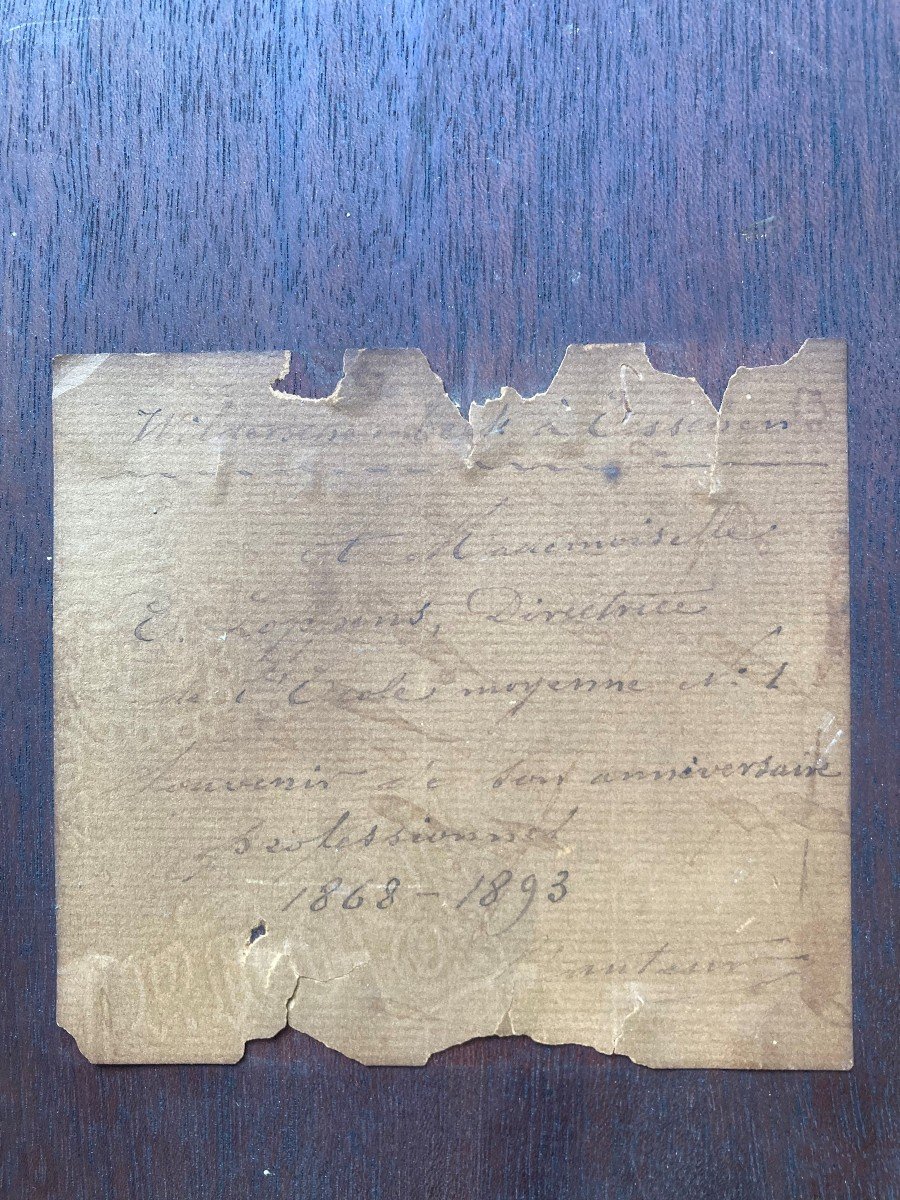 à Esschen
A Mademoiselle
E. Loppens, Directrice
de l'École moyenne N.º 1
Souvenir de son anniversaire
professionnel
1868 - 1893
L'auteur